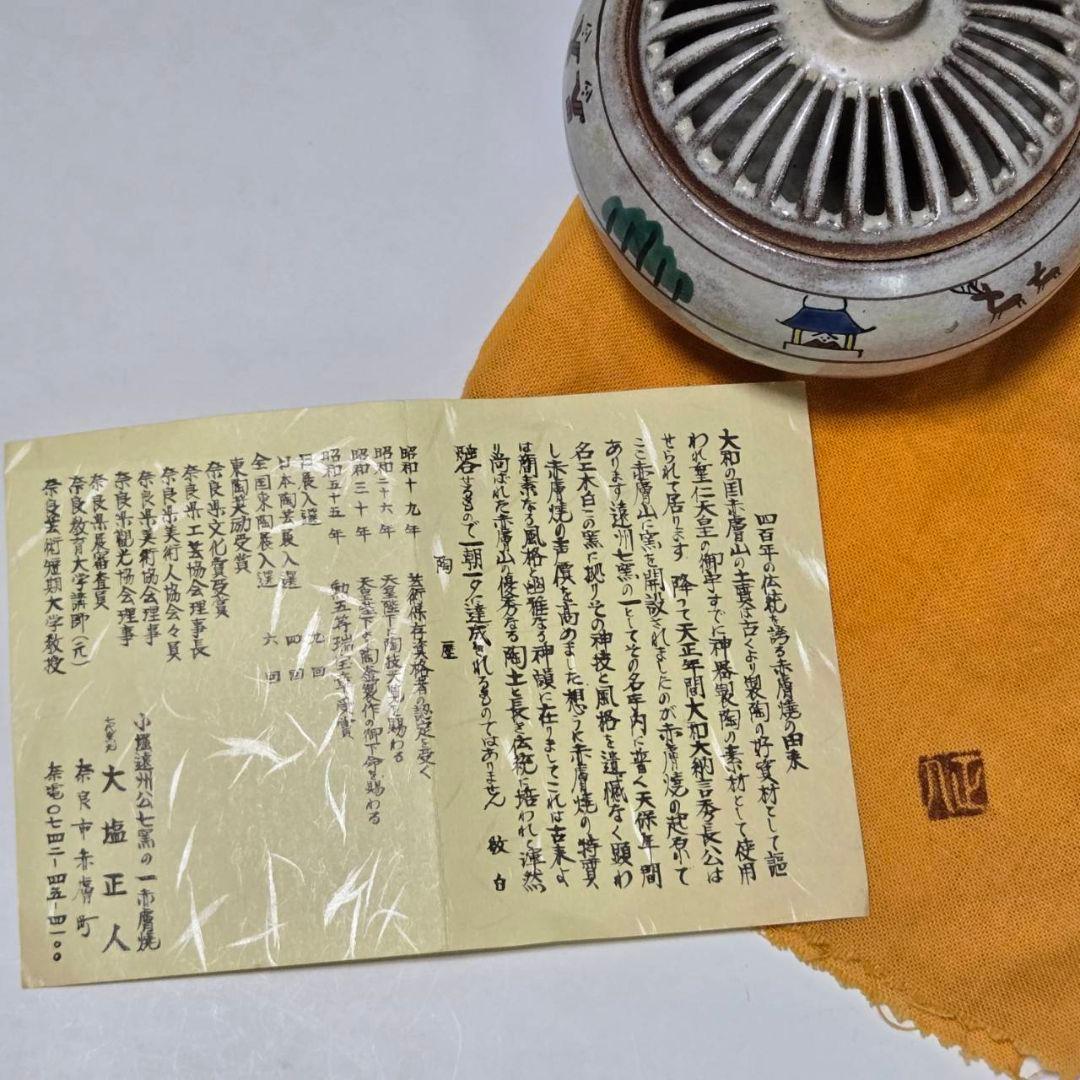 四百年の伝統を誇る赤膚焼の由来
大和の国赤膚山の土質は古くより製陶の好資材として謳
われ垂仁天皇の御宇すでに神器製陶の素材として使用
せられて居ります 降って天正年間大和大納言秀長公は
ここ赤膚山に窯を開設されましたのが赤膚焼の起原で
あります遠州七窯の一としてその名年内に普く天保年間
名工木白この窯に拠りその神技と風格を遺憾なく顕わ
し赤膚焼の声價を高めました想うに赤膚焼の特質
は簡素なる風格と幽雅なる神韻に在りましてこれは古来よ
り尚ばれた赤膚山の優秀なる陶土と長き伝統に培われ渾然
融合せるもので一朝一夕に達成されるものではありません 敬白
陶
昭和十九年 芸術保存資格者の認定を受く
昭和二十六年 天皇陛下に陶技天覧を賜わる
昭和三十年 天皇陛下より陶壺製作の御下命を賜わる
昭和五十五年 勲五等瑞宝章
日展入選 九回
日本陶芸展入選 四回
全国東陶展入選 六回
東陶奨励賞受賞
奈良県文化賞受賞
奈良県工芸協会理事長
奈良県美術人協会々員
奈良県美術協会理事
奈良県観光協会理事
奈良県展審査員
奈良教育大学講師(元)
奈良芸術短期大学教授
小堀遠州公七窯の一赤膚焼
大塩正人
奈良市赤膚町
奈電〇七四二-四五-四一〇〇
正人